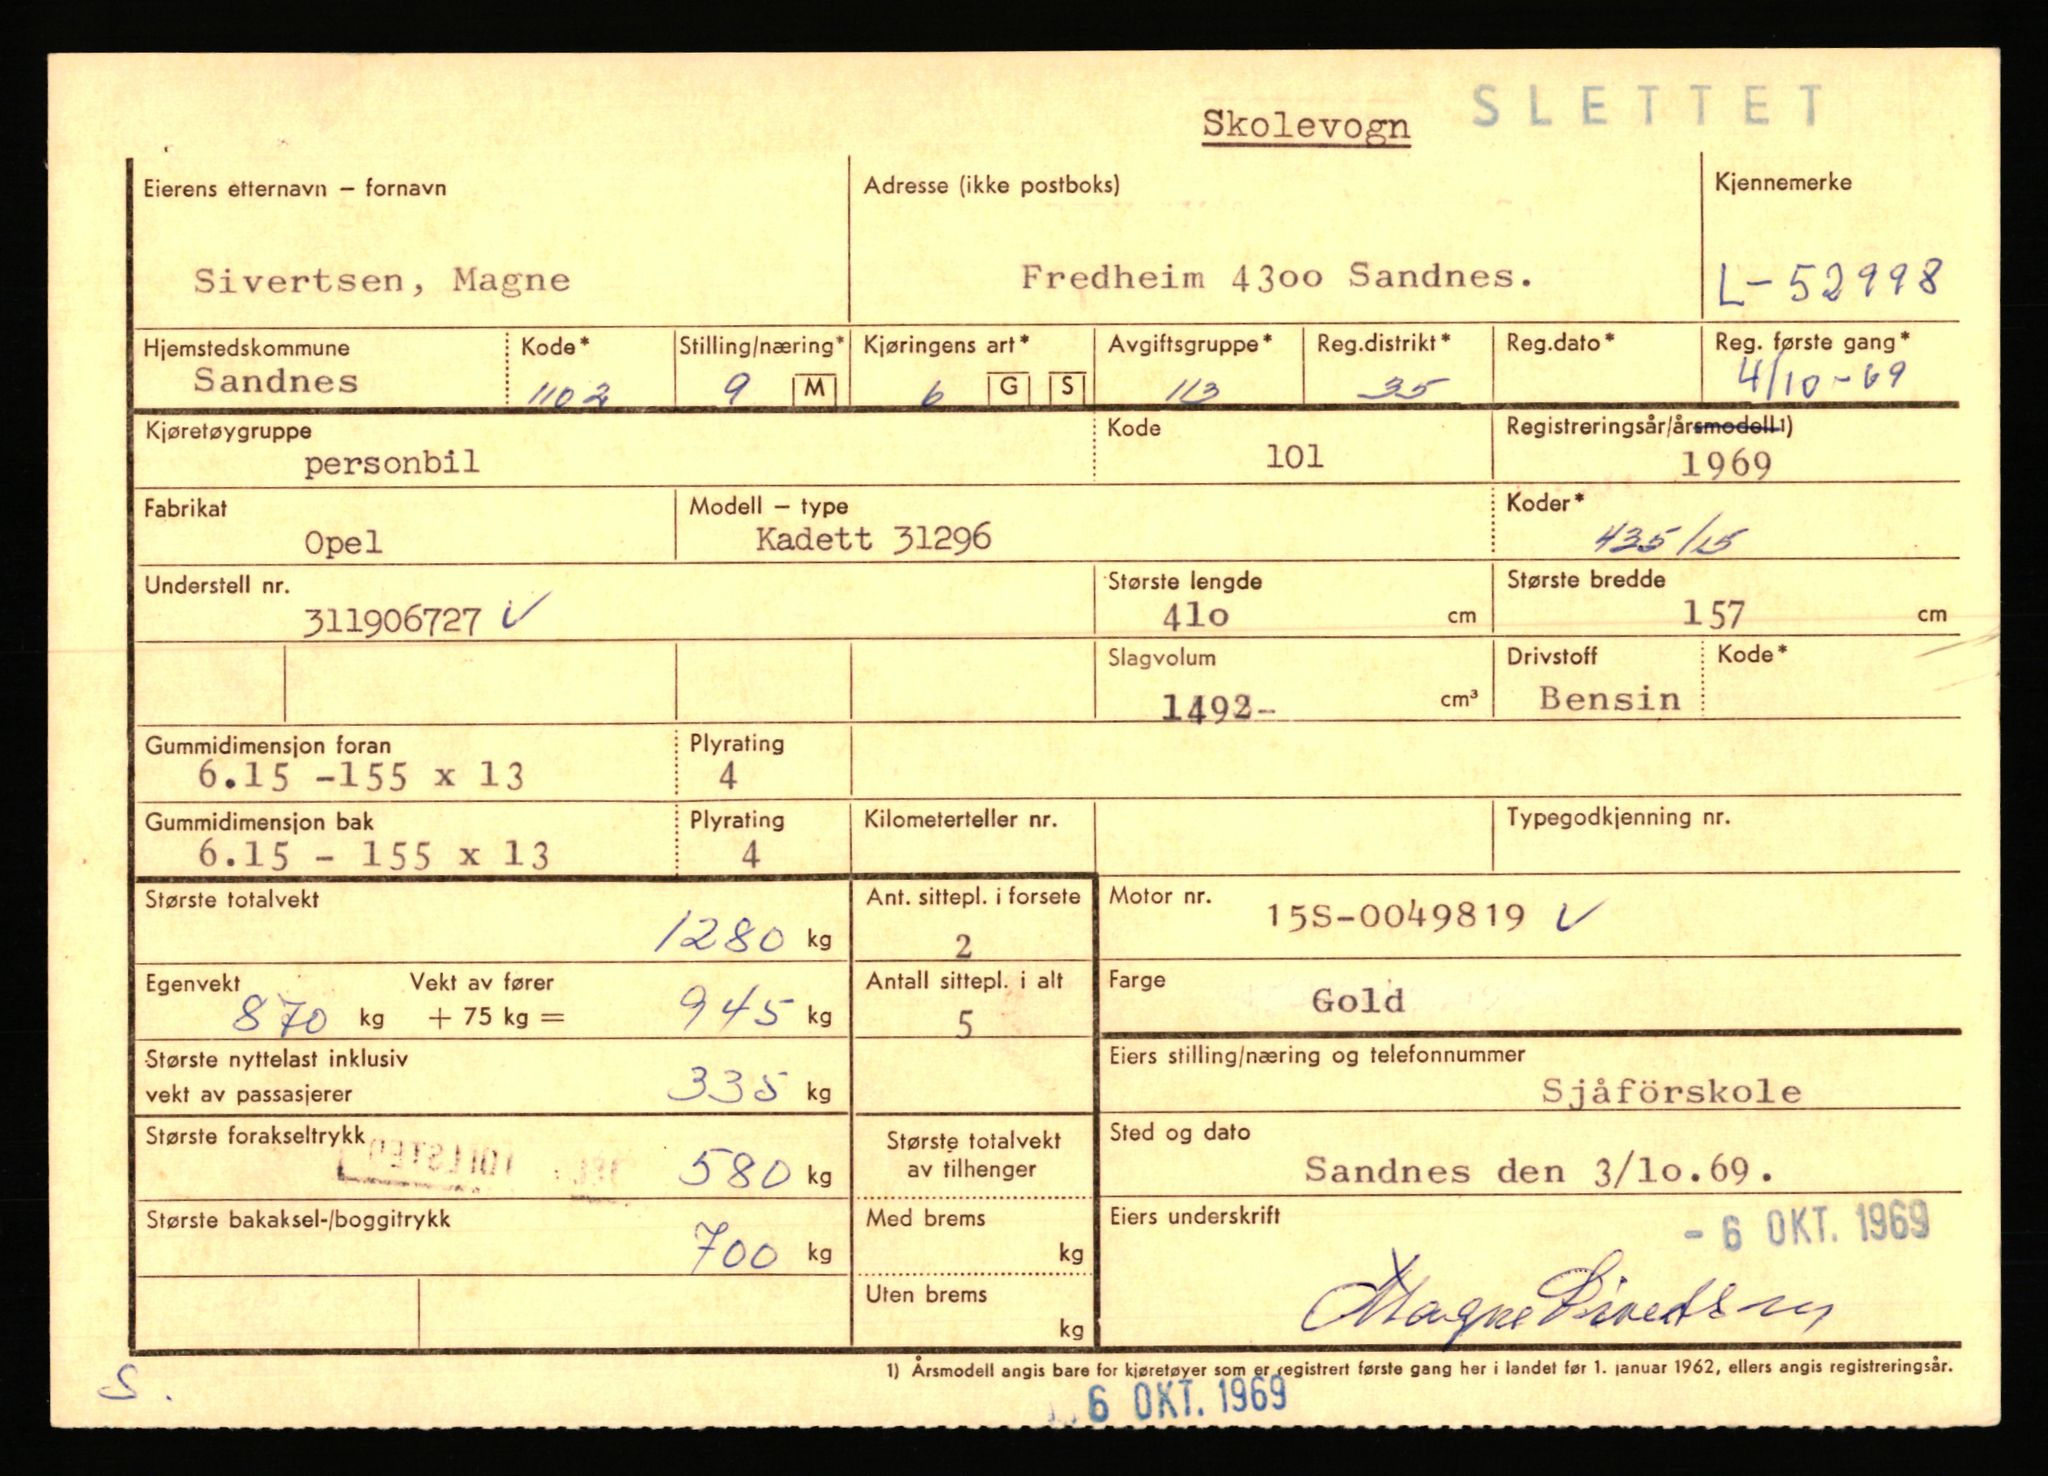 SLETTET
Skolevogn
Eierens etternavn – fornavn
Adresse (ikke postboks)
Kjennemerke
Sivertsen, Magne
Fredheim 43oo Sandnes.
L-52998
Hjemstedskommune
Kode*
Stilling/næring*
Kjøringens art*
Avgiftsgruppe*
Reg.distrikt*
Reg.dato*
Reg. første gang*
Sandnes
1102
9 M
6 G S
113
35
4/10-69
Kjøretøygruppe
Kode
Registreringsår/årsmodell 1)
personbil
101
1969
Fabrikat
Modell – type
Koder*
Opel
Kadett 31296
435/15
Understell nr.
Største lengde
Største bredde
311906727 ✓
41o cm
157 cm
Slagvolum
Drivstoff
Kode*
1492- cm³
Bensin
Gummidimensjon foran
Plyrating
6.15 -155 x 13
4
Gummidimensjon bak
Plyrating
Kilometerteller nr.
Typegodkjenning nr.
6.15 - 155 x 13
4
Største totalvekt
1280 kg
Ant. sittepl. i forsete
2
Motor nr.
15S-0049819 ✓
Egenvekt
Vekt av fører
870 kg + 75 kg = 945 kg
Antall sittepl. i alt
5
Farge
Gold
Største nyttelast inklusiv
vekt av passasjerer
335 kg
Eiers stilling/næring og telefonnummer
Sjåförskole
Største forakseltrykk
580 kg
Største totalvekt
av tilhenger
Sted og dato
Sandnes den 3/1o.69.
Største bakaksel-/boggitrykk
700 kg
Med brems
kg
Eiers underskrift
- 6 OKT. 1969
Magne Sivertsen
Uten brems
kg
1) Årsmodell angis bare for kjøretøyer som er registrert første gang her i landet før 1. januar 1962, ellers angis registreringsår.
S.
6 OKT. 1969